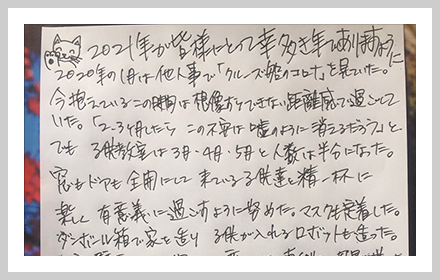 2021年が皆様にとって幸多き年でありますように
2020年の1月は他人事で「クルーズ船のコロナ」を見ていた。
今抱えているこの時間は想像もできない距離感で過ごして
いた。「2〜3ヶ月したら この不安は嘘のように消えるだろう」と
でも 子供教室は3月・4月・5月と人数は半分になった。
窓もドアも全開にして 来ている子供達と精一杯に
楽しく 有意義に過ごすように努めた。マスクも定着した。
ダンボール箱で家を造り 子供が入れるロボットも造った。